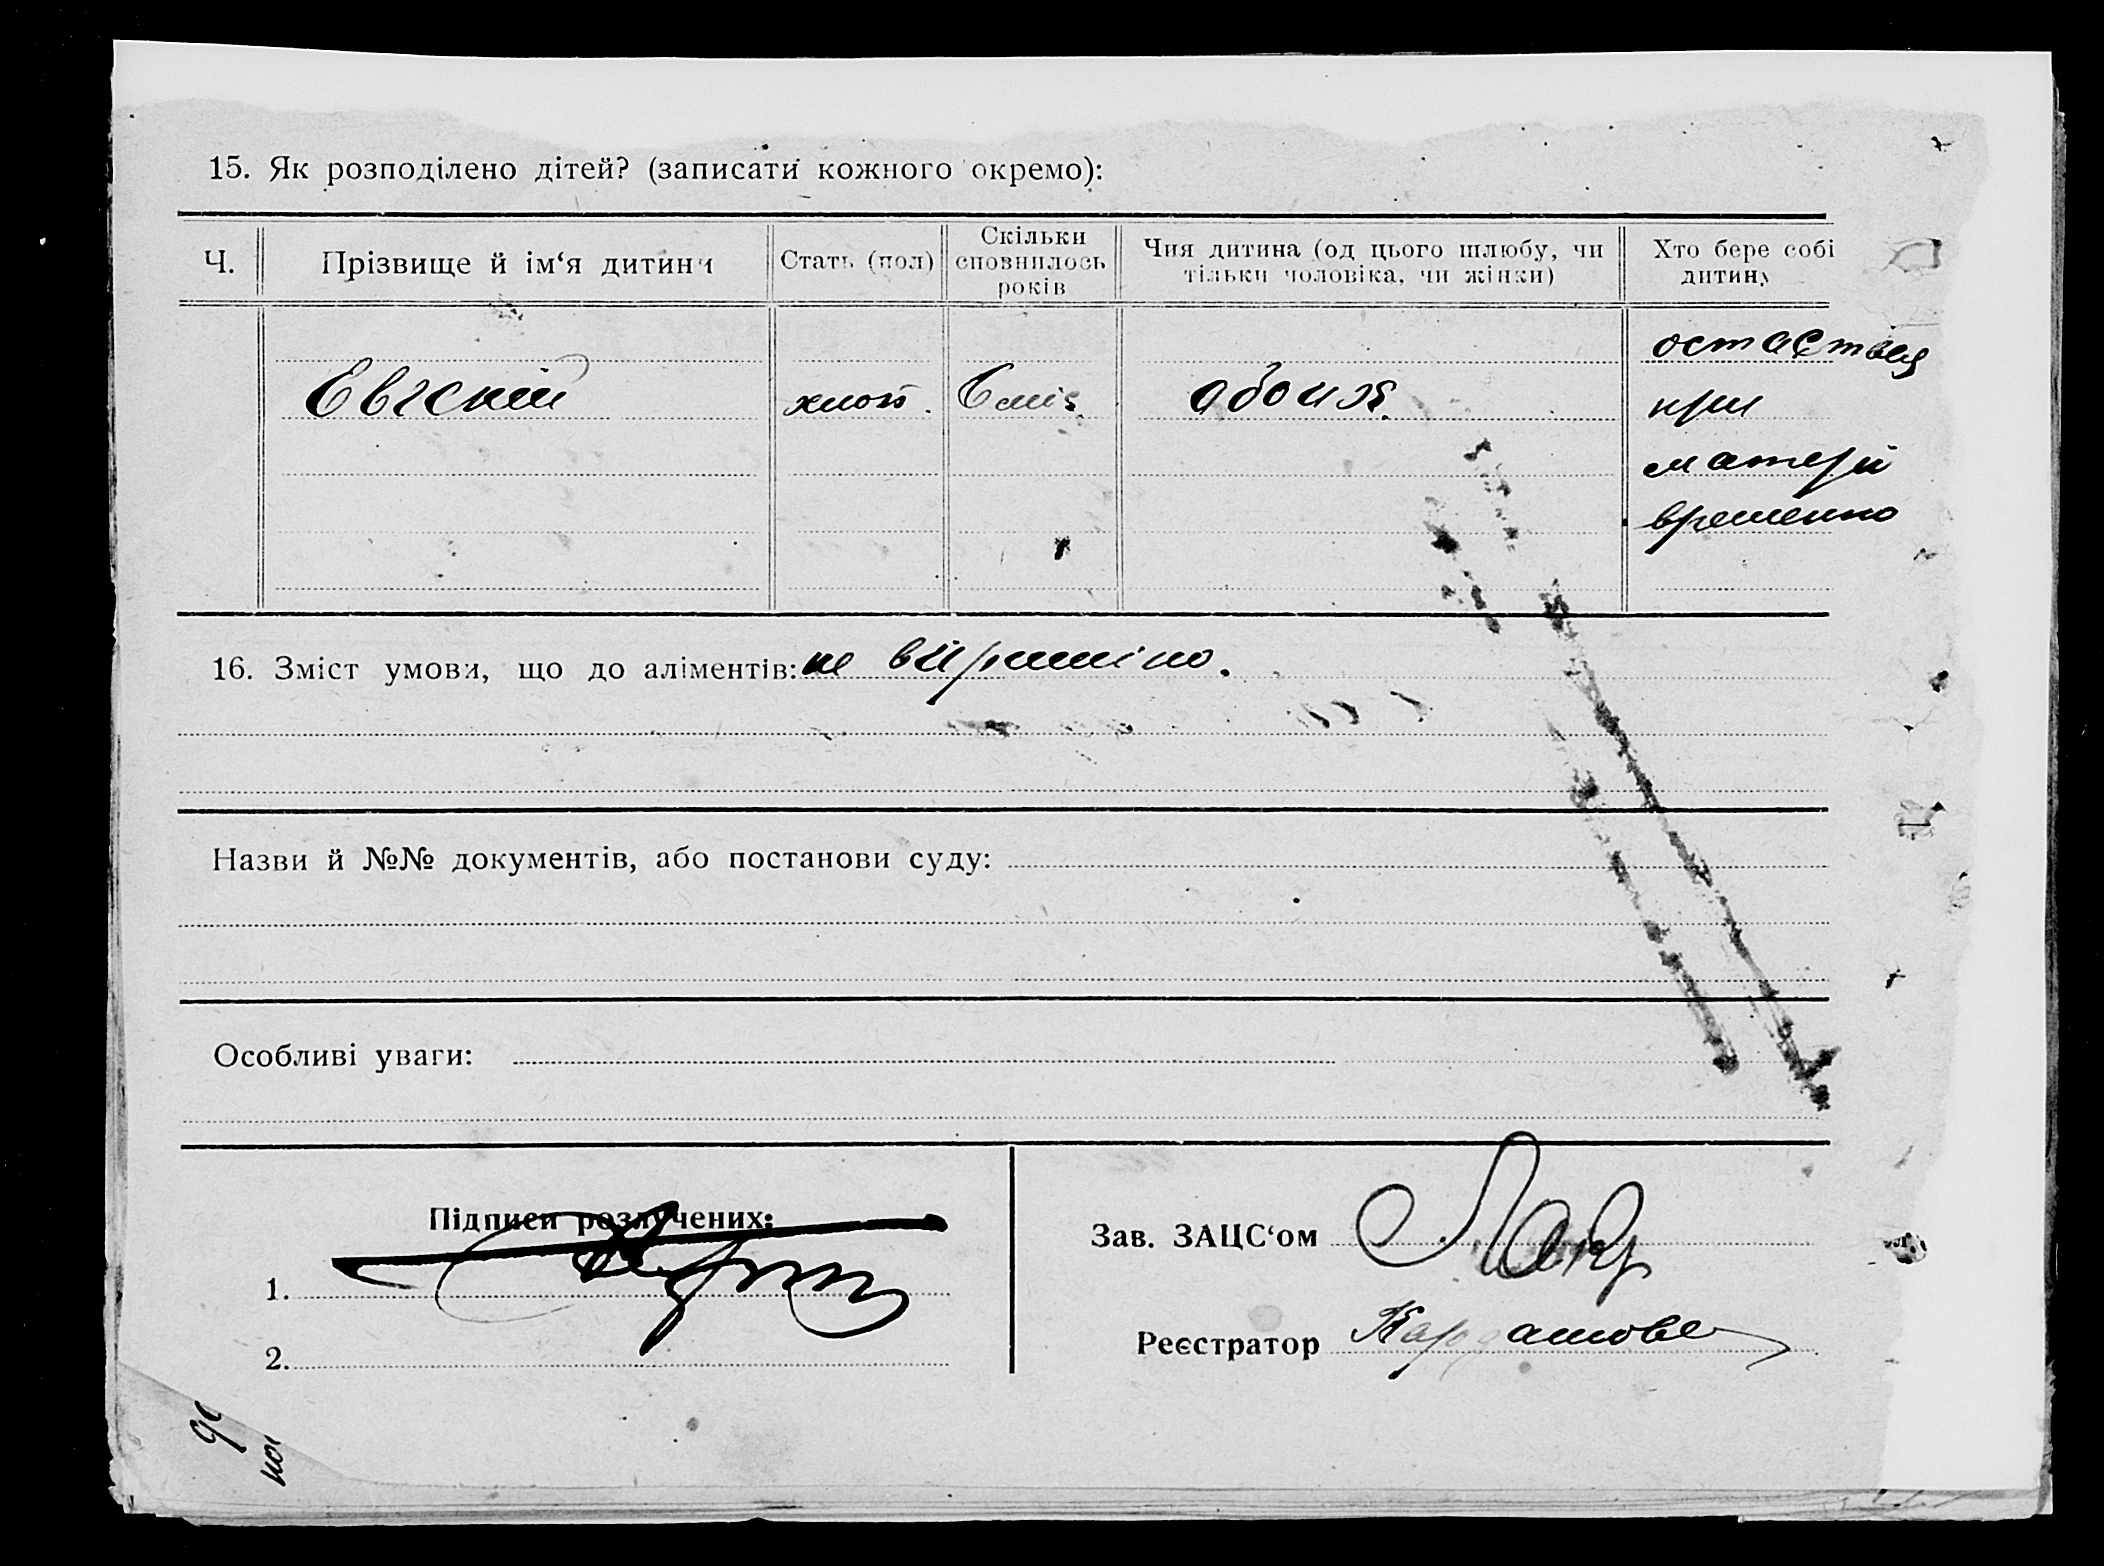 15. Як розподілено дітей? (записати кожного окремо):
Ч.
Прізвище й ім‘я дитини
Стать (пол)
Скільки
сповнилось
років
Чия дитина (од цього шлюбу, чи
тільки чоловіка, чи жінки)
Хто бере собі
дитину
Евгений
хлоп.
6 літ
обоих
остается
при
матери
временно
16. Зміст умови, що до аліментів: не вирішіно.
Назви й №№ документів, або постанови суду:
Особливі уваги:
Підписи розлучених:
1.
2.
Зав. ЗАЦС‘ом
Реєстратор